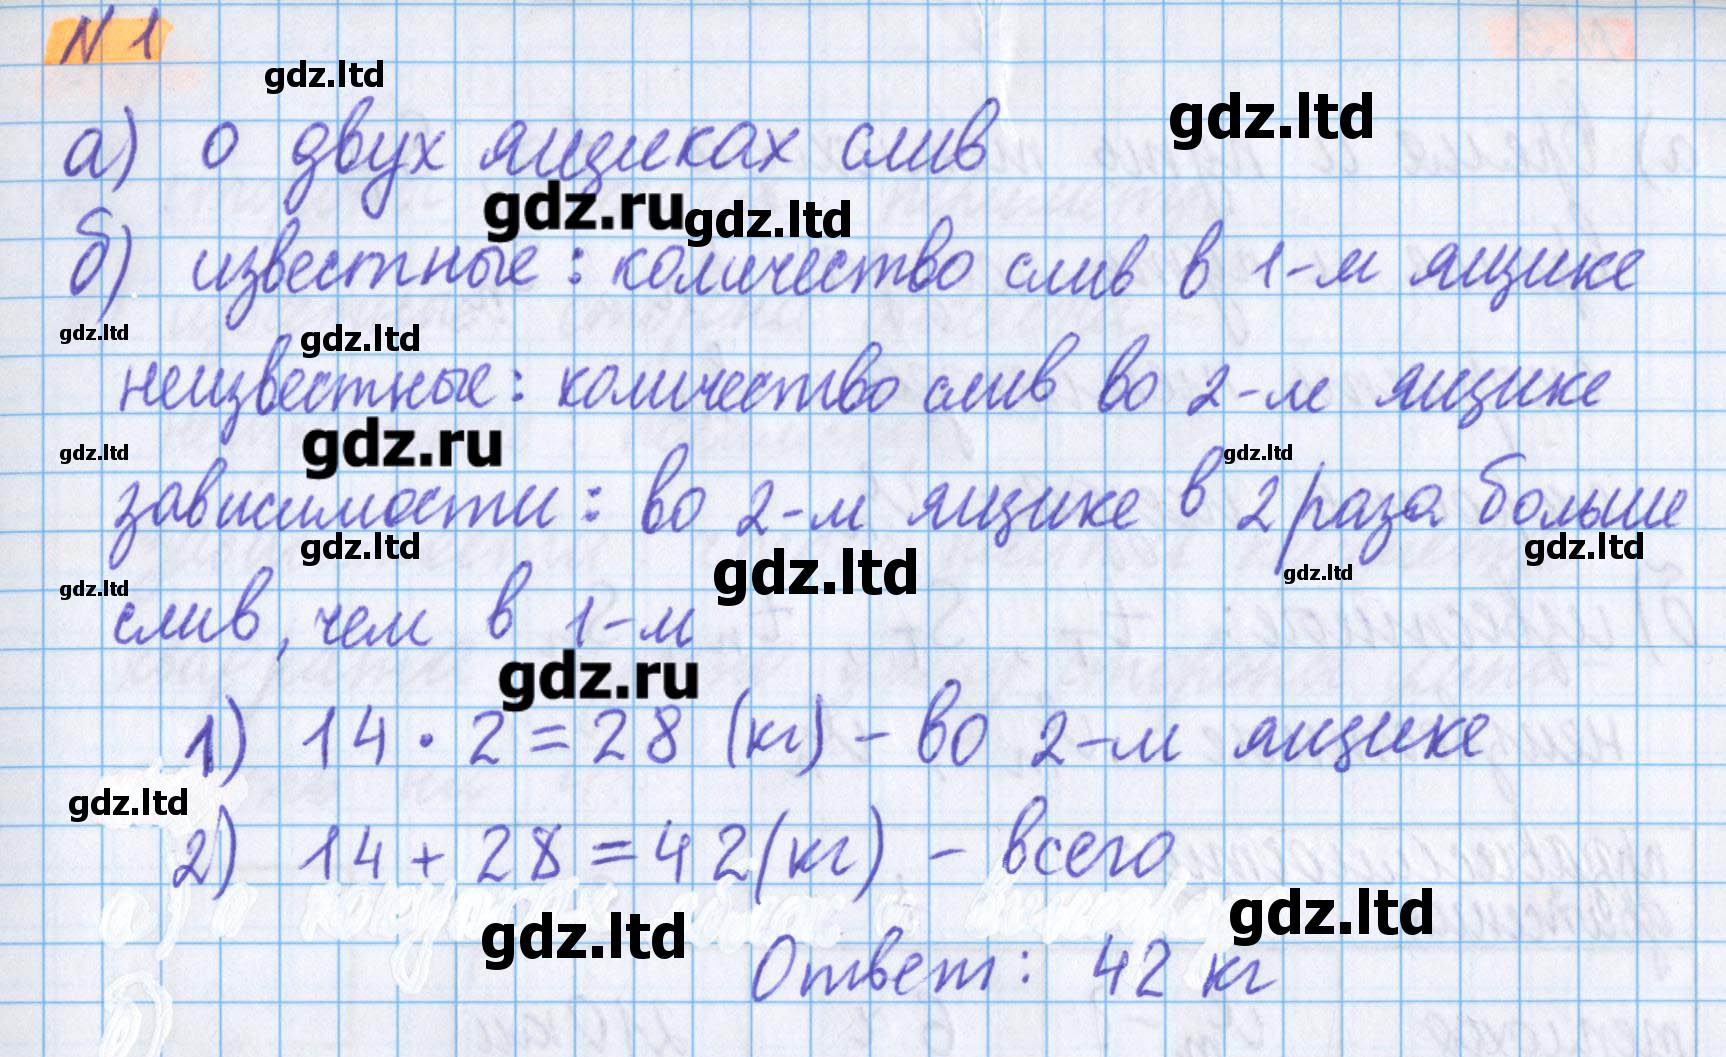 N 1
gdz.ltd
gdz.ltd
а) о двух ящиках слив
gdz.ru gdz.ltd
б) известные: количество слив в 1-м ящике
gdz.ltd gdz.ltd
неизвестные: количество слив во 2-м ящике
gdz.ltd gdz.ru gdz.ltd
зависимости: во 2-м ящике в 2 раза больше
gdz.ltd gdz.ltd gdz.ltd
gdz.ltd gdz.ltd
слив, чем в 1-м
gdz.ru
1) 14 · 2 = 28 (кг) - во 2-м ящике
gdz.ltd
2) 14 + 28 = 42 (кг) - всего
gdz.ltd gdz.ltd
Ответ: 42 кг